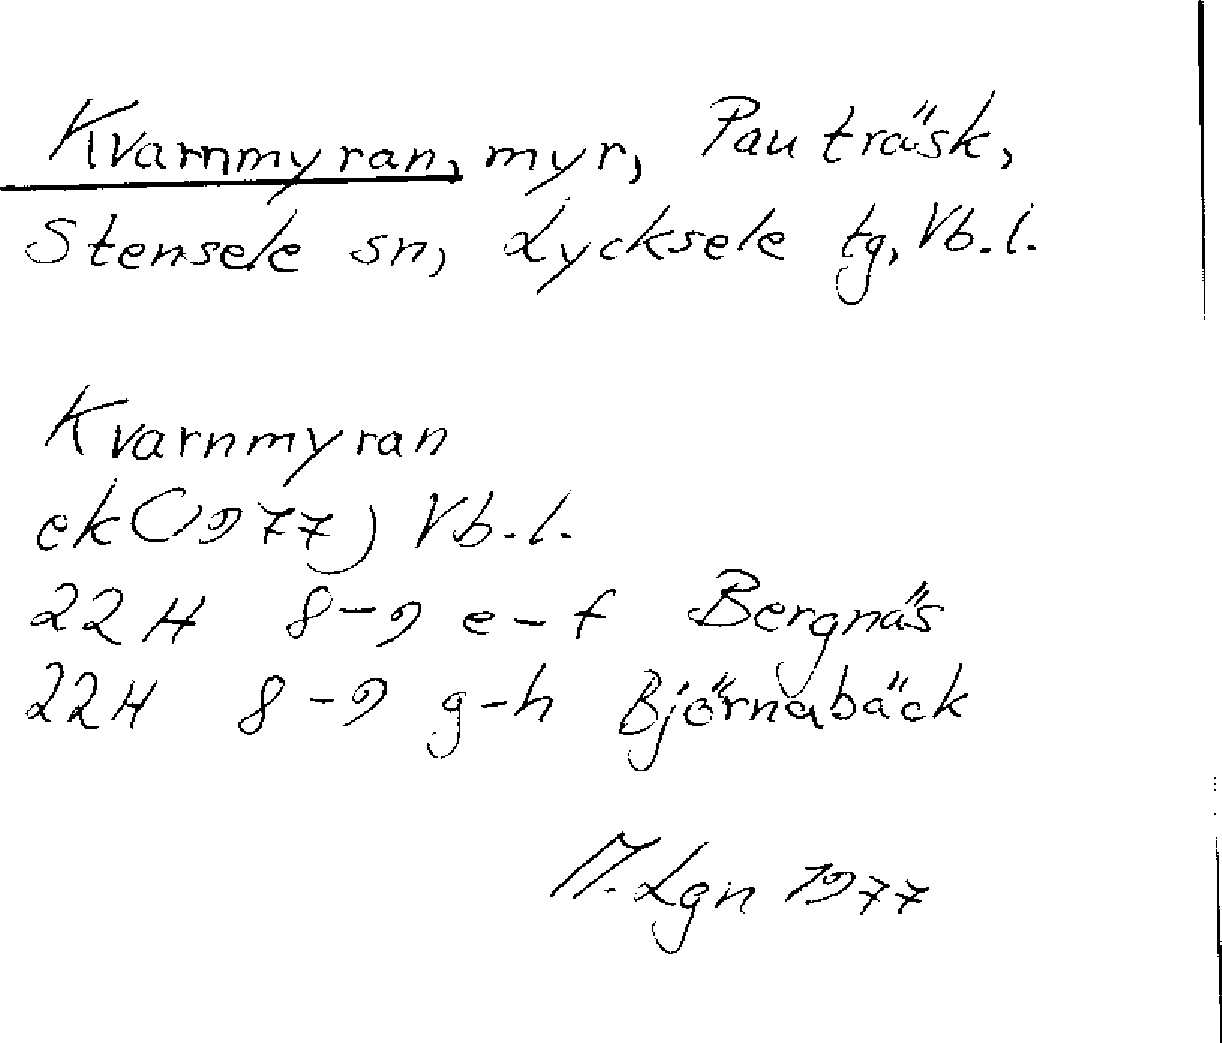 Kvarnmyran, myr, Pauträsk,
Stensele sn, Lycksele tg, Vb.l.
Kvarnmyran
ek (1977) Vb.l.
22H 8-9 e-f Bergnäs
22H 8-9 g-h Björnabäck
M. Lgn 1977